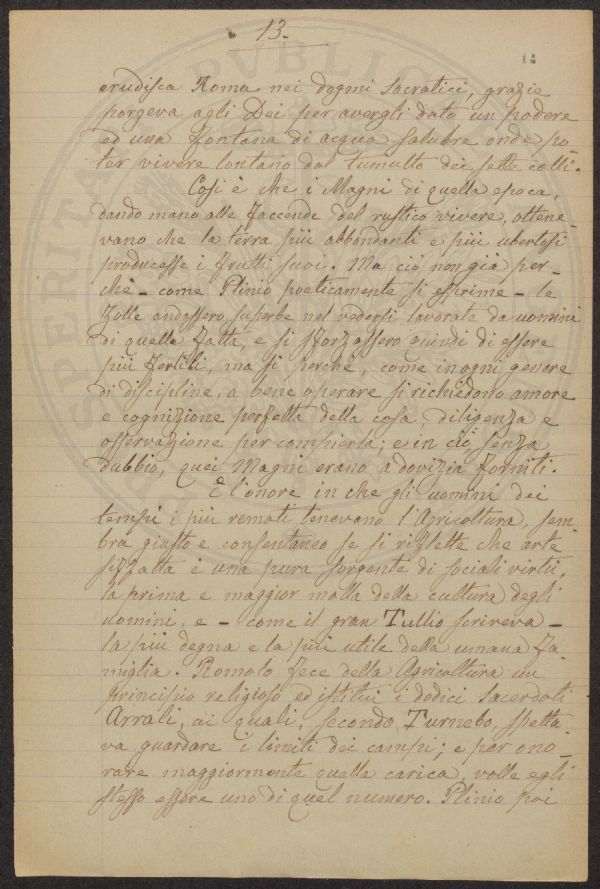 13.
14
erudisca Roma nei dogmi Socratici, grazie
porgeva agli Dei per avergli dato un podere
ed una fontana di acqua salubre onde po-
ter vivere lontano dal tumulto dei sette colli.
Così è che i Magni di quella epoca,
dando mano alle faccende del rustico vivere, ottene-
vano che la terra più abbondanti e più ubertosi
producesse i frutti suoi. Ma ciò non già per-
chè - come Plinio poeticamente si esprime - le
zolle andassero superbe nel vedersi lavorate da uomini
di quella fatta, e si sforzassero quindi di essere
più fertili, ma sì perchè, come in ogni genere
di discipline, a bene operare si richiedono amore
e cognizione perfetta della cosa, diligenza e
osservazione per compierla; e in ciò senza
dubbio, quei Magni erano a dovizia forniti.
E l'onore in che gli uomini dei
tempi i più remoti tenevano l'Agricoltura, sem-
bra giusto e consentaneo se si riflette che arte
siffatta è una pura sorgente di sociali virtù,
la prima e maggior molla della cultura degli
uomini, e - come il gran Tullio scriveva -
la più degna e la più utile della umana fa-
miglia. Romolo fece della Agricoltura un
principio religioso ed istituì i dodici Sacerdoti
Arvali, ai quali, secondo Turnebo, spetta-
va guardare i limiti dei campi; e per ono-
rare maggiormente quella carica, volle egli
stesso essere uno di quel numero. Plinio poi